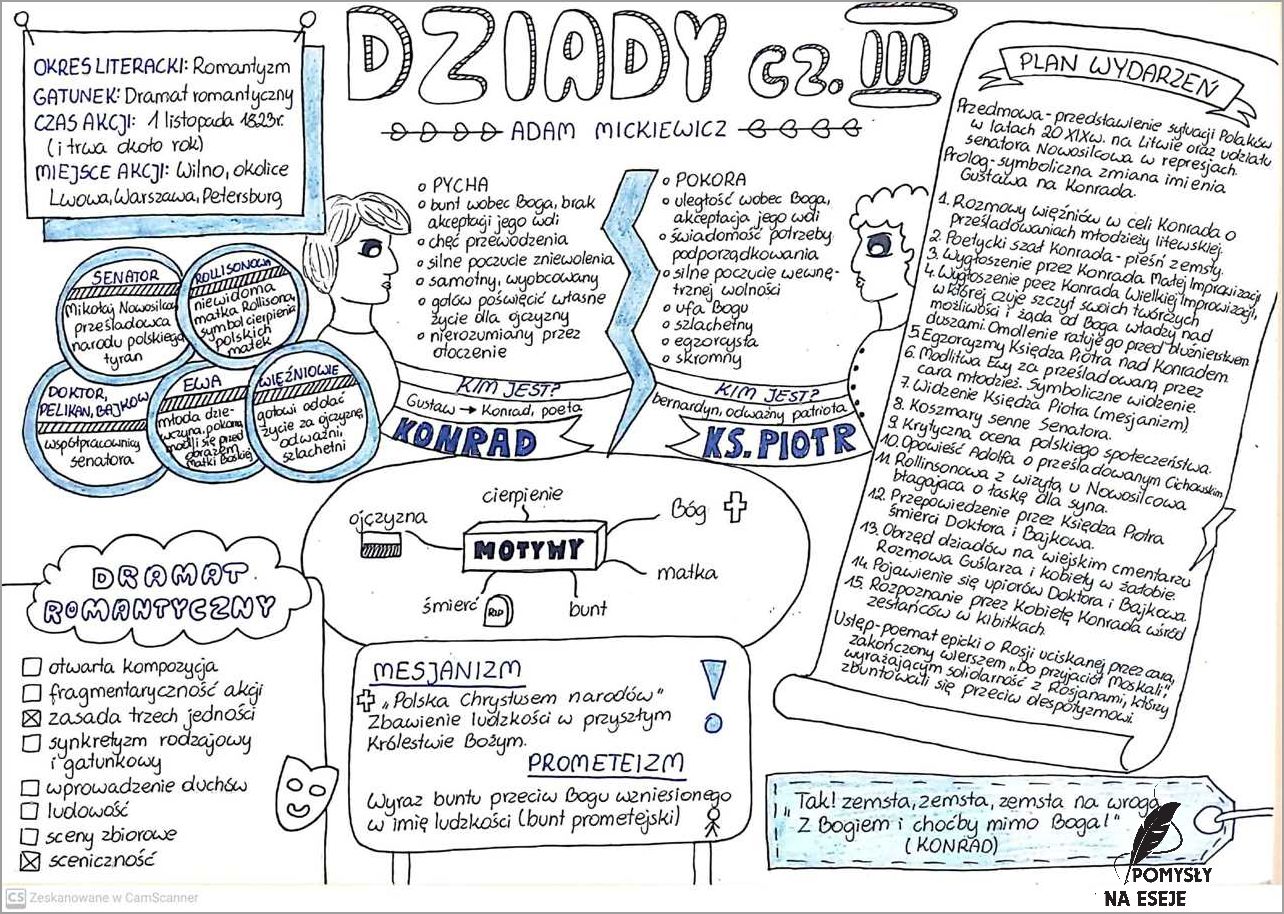 DZIADY cz. III
ADAM MICKIEWICZ
OKRES LITERACKI: Romantyzm
GATUNEK: Dramat romantyczny
CZAS AKCJI: 1 listopada 1823r.
(i trwa około rok)
MIEJSCE AKCJI: Wilno, okolice
Lwowa, Warszawa, Petersburg
SENATOR
Mikołaj Nowosilcow
prześladowca
narodu polskiego,
tyran
ROLLISONOWA
niewidoma
matka Rollisona,
symbol cierpienia
polskich
matek
DOKTOR,
PELIKAN, BAJKOW
współpracownicy
Senatora
EWA
młoda dzie-
wczyna, pokorna,
modli się przed
obrazem
Matki Boskiej
WIĘŹNIOWIE
gotowi oddać
życie za ojczyznę,
odważni,
szlachetni
o PYCHA
o bunt wobec Boga, brak
akceptacji jego woli
o chęć przewodzenia
o silne poczucie zniewolenia
o samotny, wyobcowany
o gotów poświęcić własne
życie dla ojczyzny
o nierozumiany przez
otoczenie
KIM JEST?
Gustaw → Konrad, poeta
KONRAD
o POKORA
o uległość wobec Boga,
akceptacja jego woli
o świadomość potrzeby
podporządkowania
o silne poczucie wewnę-
trznej wolności
o ufa Bogu
o szlachetny
o egzorcysta
o skromny
KIM JEST?
bernardyn, odważny patriota
KS. PIOTR
MOTYWY
cierpienie
ojczyzna
Bóg
matka
śmierć
RIP
bunt
DRAMAT
ROMANTYCZNY
☐ otwarta kompozycja
☐ fragmentaryczność akcji
☒ zasada trzech jedności
☐ synkretyzm rodzajowy
i gatunkowy
☐ wprowadzenie duchów
☐ ludowość
☐ sceny zbiorowe
☒ sceniczność
MESJANIZM
„Polska Chrystusem narodów"
Zbawienie ludzkości w przyszłym
Królestwie Bożym.
PROMETEIZM
Wyraz buntu przeciw Bogu wzniesionego
w imię ludzkości (bunt prometejski)
!
PLAN WYDARZEŃ
Przedmowa - przedstawienie sytuacji Polaków
w latach 20 XIXw. na Litwie oraz udziału
senatora Nowosilcowa w represjach.
Prolog - symboliczna zmiana imienia
Gustawa na Konrada.
1. Rozmowy więźniów w celi Konrada o
prześladowaniach młodzieży litewskiej.
2. Poetycki szał Konrada - pieśń zemsty.
3. Wygłoszenie przez Konrada Małej Improwizacji
4. Wygłoszenie przez Konrada Wielkiej Improwizacji,
w której czuje szczyt swoich twórczych
możliwości i żąda od Boga władzy nad
duszami. Omdlenie ratuje go przed bluźnierstwem
5. Egzorcyzmy Księdza Piotra nad Konradem
6. Modlitwa Ewy za prześladowaną przez
cara młodzież. Symboliczne widzenie.
7. Widzenie Księdza Piotra (mesjanizm).
8. Koszmary senne Senatora.
9. Krytyczna ocena polskiego społeczeństwa.
10. Opowieść Adolfa o prześladowanym Cichowskim
11. Rollinsonowa z wizytą u Nowosilcowa
błagająca o łaskę dla syna.
12. Przepowiedzenie przez Księdza Piotra
śmierci Doktora i Bajkowa.
13. Obrzęd dziadów na wiejskim cmentarzu
Rozmowa Guślarza i kobiety w żałobie.
14. Pojawienie się upiorów Doktora i Bajkowa.
15. Rozpoznanie przez Kobietę Konrada wśród
zesłańców w kibitkach.
Ustęp - poemat epicki o Rosji uciskanej przez cara,
zakończony wierszem „Do przyjaciół Moskali"
wyrażającym solidarność z Rosjanami, którzy
zbuntowali się przeciw despotyzmowi.
„Tak! zemsta, zemsta, zemsta na wroga,
Z Bogiem i choćby mimo Boga!"
(KONRAD)
POMYSŁY
NA ESEJE
CS Zeskanowane w CamScanner